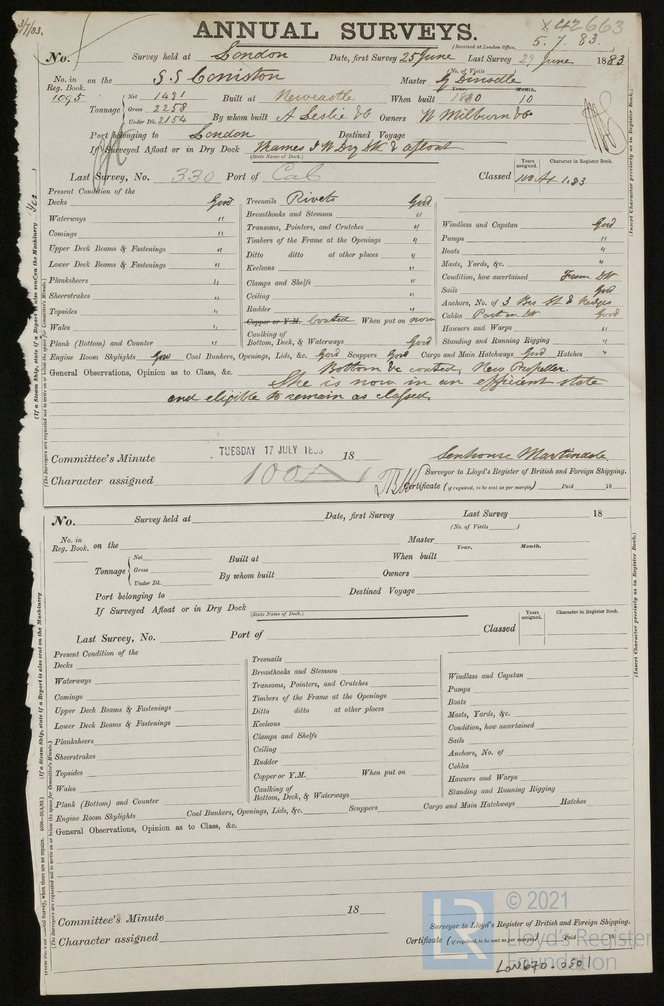 3/7/83.
ANNUAL SURVEYS.
X 42663
(Received at London Office,
5. 7. 83.
No. Survey held at London Date, first Survey 25 June Last Survey 29 June 1883
(No. of Visits
No. in Reg. Book. 1095 on the S.S. Coniston Master G Dinsdle
Tonnage Net 1491 Built at Newcastle When built Year. 1880 Month. 10
Gross 2258
Under Dk. 2154 By whom built A Leslie & Co Owners W Milburn & Co
Port belonging to London Destined Voyage
If Surveyed Afloat or in Dry Dock Thames I W Dry Dk & afloat
(State Name of Dock.)
Last Survey, No. 330 Port of Classed Years assigned. Character in Register Book. 100 A1 1.83
Present Condition of the
Decks Good Treenails Rivets Good
Waterways " Breasthooks and Stemson " Windlass and Capstan Good
Comings " Transoms, Pointers, and Crutches " Pumps "
Upper Deck Beams & Fastenings " Timbers of the Frame at the Openings " Boats "
Lower Deck Beams & Fastenings " Ditto ditto at other places " Masts, Yards, &c. "
Planksheers " Keelsons " Condition, how ascertained From Dk
Sheerstrakes " Clamps and Shelfs " Sails Good
Topsides " Ceiling " Anchors, No. of 3 Bes St & Kedges
Wales " Rudder " Cables Part on Dk Good
Plank (Bottom) and Counter " Copper or Y.M. Coated When put on now Hawsers and Warps "
Caulking of Bottom, Deck, & Waterways Good Standing and Running Rigging "
Engine Room Skylights Good Coal Bunkers, Openings, Lids, &c. Good Scuppers Good Cargo and Main Hatchways Good Hatches "
General Observations, Opinion as to Class, &c. Bottom &c coated, New Propeller.
She is now in an efficient state
and eligible to remain as classed
Committee's Minute TUESDAY 17 JULY 1883 18 Senhouse Martindale
Surveyor to Lloyd's Register of British and Foreign Shipping.
Character assigned 100A1 Certificate (if required, to be sent as per margin,) Paid 18
No. Survey held at Date, first Survey Last Survey 18
(No. of Visits )
No. in Reg. Book. on the Master
Tonnage Net Built at When built Year. Month.
Gross
Under Dk. By whom built Owners
Port belonging to Destined Voyage
If Surveyed Afloat or in Dry Dock
(State Name of Dock.)
Last Survey, No. Port of Classed Years assigned. Character in Register Book.
Present Condition of the
Decks Treenails
Waterways Breasthooks and Stemson Windlass and Capstan
Comings Transoms, Pointers, and Crutches Pumps
Upper Deck Beams & Fastenings Timbers of the Frame at the Openings Boats
Lower Deck Beams & Fastenings Ditto ditto at other places Masts, Yards, &c.
Planksheers Keelsons Condition, how ascertained
Sheerstrakes Clamps and Shelfs Sails
Topsides Ceiling Anchors, No. of
Wales Rudder Cables
Plank (Bottom) and Counter Copper or Y.M. When put on Hawsers and Warps
Caulking of Bottom, Deck, & Waterways Standing and Running Rigging
Engine Room Skylights Coal Bunkers, Openings, Lids, &c. Scuppers Cargo and Main Hatchways Hatches
General Observations, Opinion as to Class, &c.
Committee's Minute 18
Surveyor to Lloyd's Register of British and Foreign Shipping.
Character assigned Certificate (if required, to be sent as per margin,) Paid 18
LR © 2021
Lloyd's Register
Foundation
LON670-0501
(Insert Character precisely as in Register Book.)
(Insert Character precisely as in Register Book.)